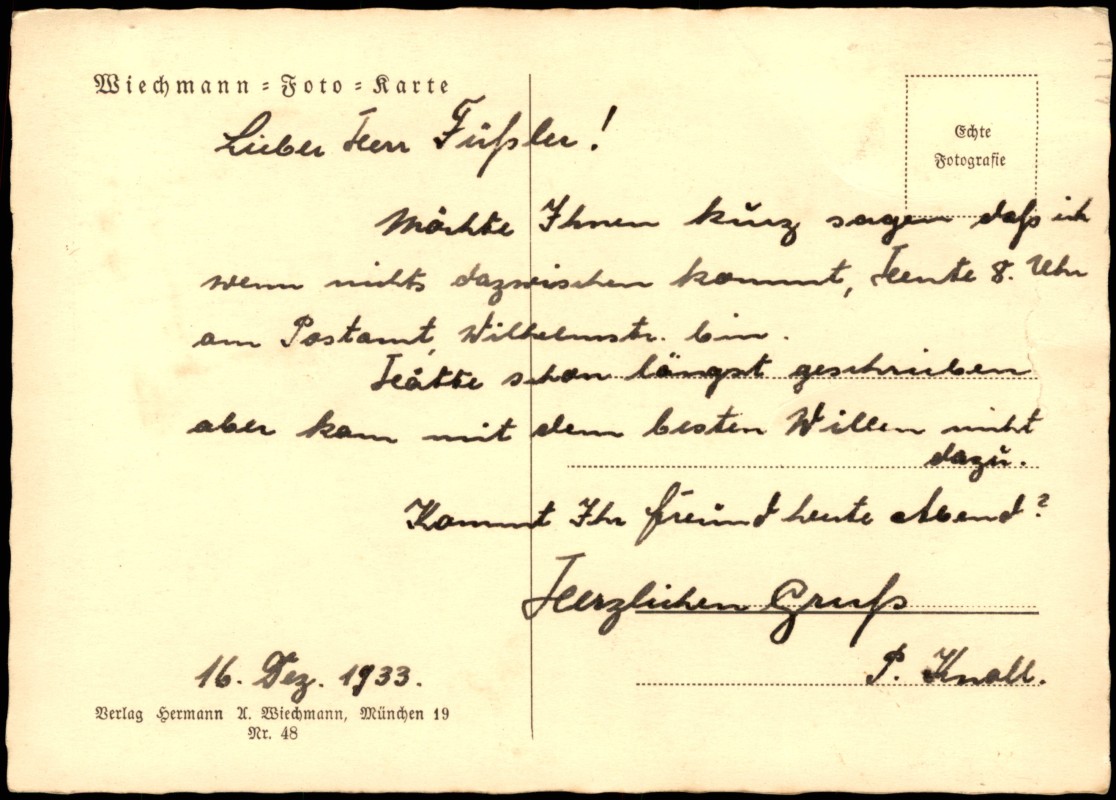 Wiechmann-Foto-Karte
Echte
Fotografie
Lieber Herr Füßler!
Möchte Ihnen kurz sagen daß ich
wenn nichts dazwischen kommt, Heute 8. Uhr
am Postamt, Wilhelmstr. bin.
Hätte schon längst geschrieben
aber kam mit dem besten Willen nicht
dazu.
Kommt Ihr Freund heute Abend?
Herzlichen Gruß
P. Knoll.
16. Dez. 1933.
Verlag Hermann A. Wiechmann, München 19
Nr. 48